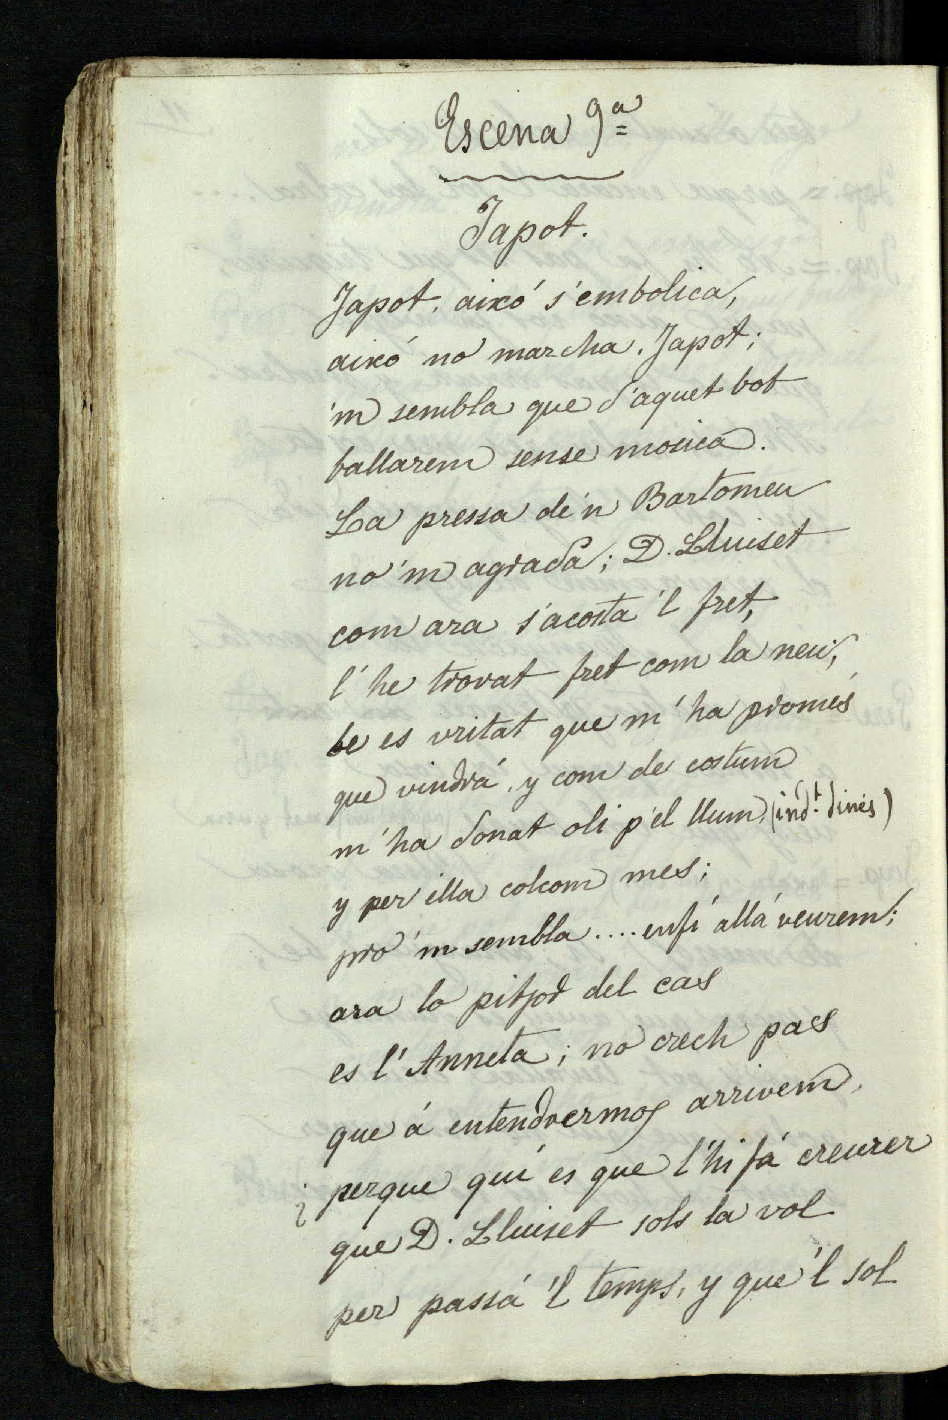 Escena 9ª
Japot.
Japot, aixó s'embolica,
aixó no marcha, Japot;
'm sembla que d'aquet bot
ballarem sense mosica.
La pressa de'n Bartomeu
no'm agrada; D. Lluiset
com ara s'acosta 'l fret,
l'he trovat fret com la neu;
be es vritat que m'ha promés
que vindrá, y com de costum
m'ha donat oli p'el llum, (indt. dinés)
y per illa colcom mes;
pro 'm sembla .... enfí allá veurem;
ara lo pitjod del cas
es l'Anneta; no crech pas
que á entendrermos arrivem,
¿ perque quí es que l'hi fá creurer
que D. Lluiset sols la vol
per passá 'l temps, y que'l sol